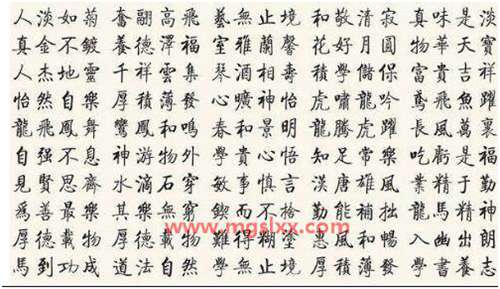 人淡如菊 奮翮高飛 藝無止境 和敬清寂 真味是淡
真金不鍍 養德澤福 室雅蘭馨 花好月圓 物華天寶
人杰地靈 千祥雲集 琴酒相壽 積學儲 富貴吉祥
怡然自樂 厚積薄發 心曠神怡 虎嘯龍吟 鳶飛魚躍
龍飛鳳舞 鸞鳳和鳴 春和景明 龍騰虎躍 長風萬裏
自强不息 神游物外 學貴心悟 知足常樂 吃虧是福
見賢思齊 水滴石穿 敏事慎言 漢唐雄風 業精于勤
爲善最樂 其樂無窮 鍥而不捨 勤能補拙 龍馬精神
www.mgslxx.com
厚德載物 厚德載物 難得糊塗 惠風和暢 入幽出朗
馬到功成 道法自然 學無止境 厚積薄發